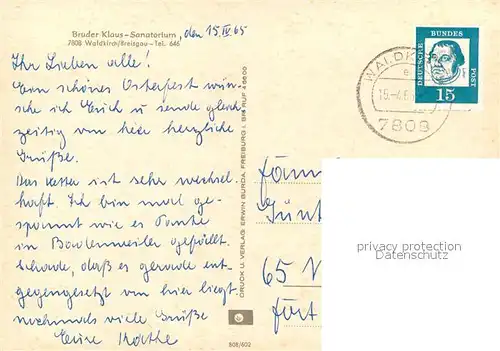 Bruder Klaus-Sanatorium, den 15. IV. 65
7808 Waldkirch/Breisgau - Tel. 646
Ihr Lieben alle!
Ein schönes Osterfest wün-
sche ich Euch u. sende gleich-
zeitig von hier herzliche
Grüße.
Das Wetter ist sehr wechsel-
haft. Ich bin mal ge-
spannt wie es Tante
in gefällt.
Schade, daß es gerade ent-
gegengesetzt von hier liegt
nochmals viele Grüße
Eure Käthe
DRUCK U. VERLAG: ERWIN BURDA, FREIBURG I. BR. RUF 46600
808/602
WALDK
7808
DEUTSCHE BUNDES POST
15
Fam
Günt
65
privacy protection
Datenschutz